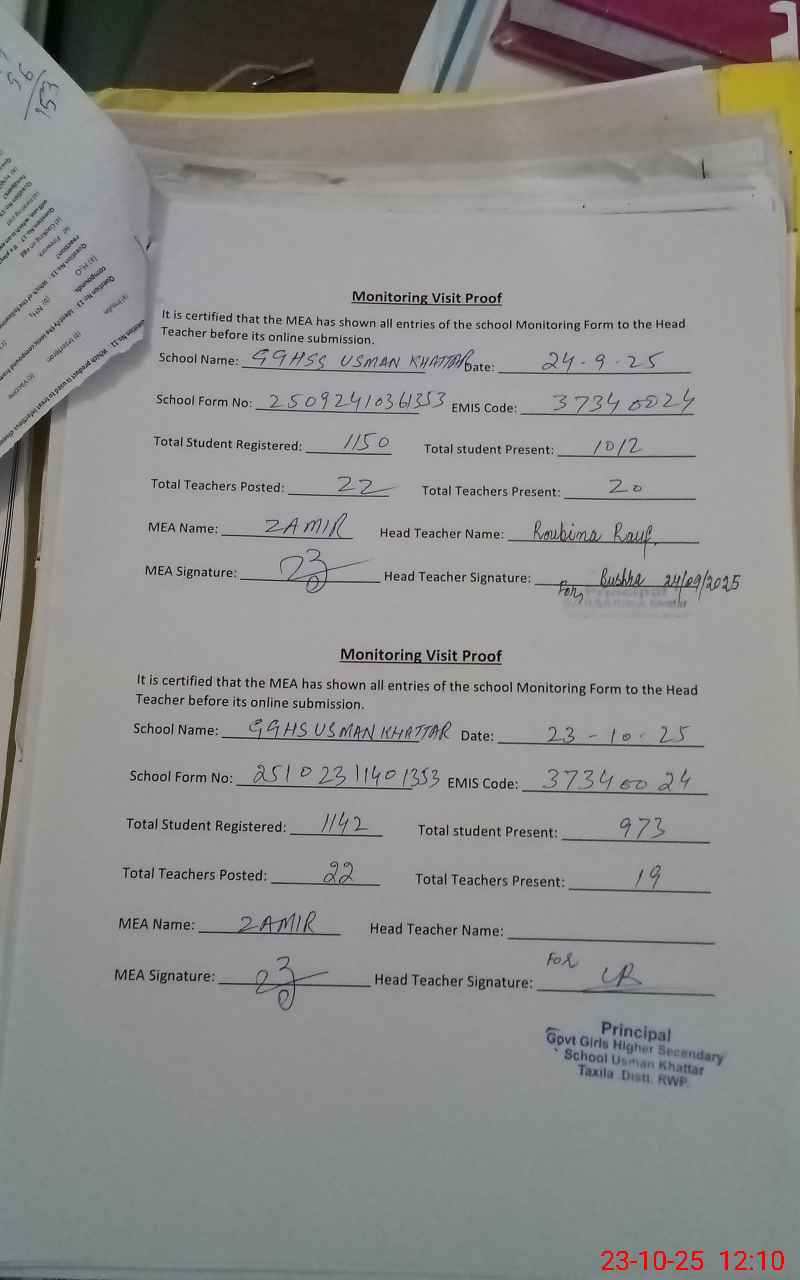 96
153
Monitoring Visit Proof
It is certified that the MEA has shown all entries of the school Monitoring Form to the Head
Teacher before its online submission.
School Name: GGHSS USMAN KHATTAR Date: 24-9-25
School Form No: 25092410361353 EMIS Code: 37340024
Total Student Registered: 1150 Total student Present: 1012
Total Teachers Posted: 22 Total Teachers Present: 20
MEA Name: ZAMIR Head Teacher Name: Roubina Rauf.
MEA Signature: Head Teacher Signature: For Bushra 24/09/2025
Principal
Monitoring Visit Proof
It is certified that the MEA has shown all entries of the school Monitoring Form to the Head
Teacher before its online submission.
School Name: GGHS USMAN KHATTAR Date: 23-10-25
School Form No: 251023111401353 EMIS Code: 37340024
Total Student Registered: 1142 Total student Present: 973
Total Teachers Posted: 22 Total Teachers Present: 19
MEA Name: ZAMIR Head Teacher Name:
MEA Signature: Head Teacher Signature: For
Principal
Govt Girls Higher Secendary
School Usman Khattar
Taxila Distt. RWP.
23-10-25 12:10